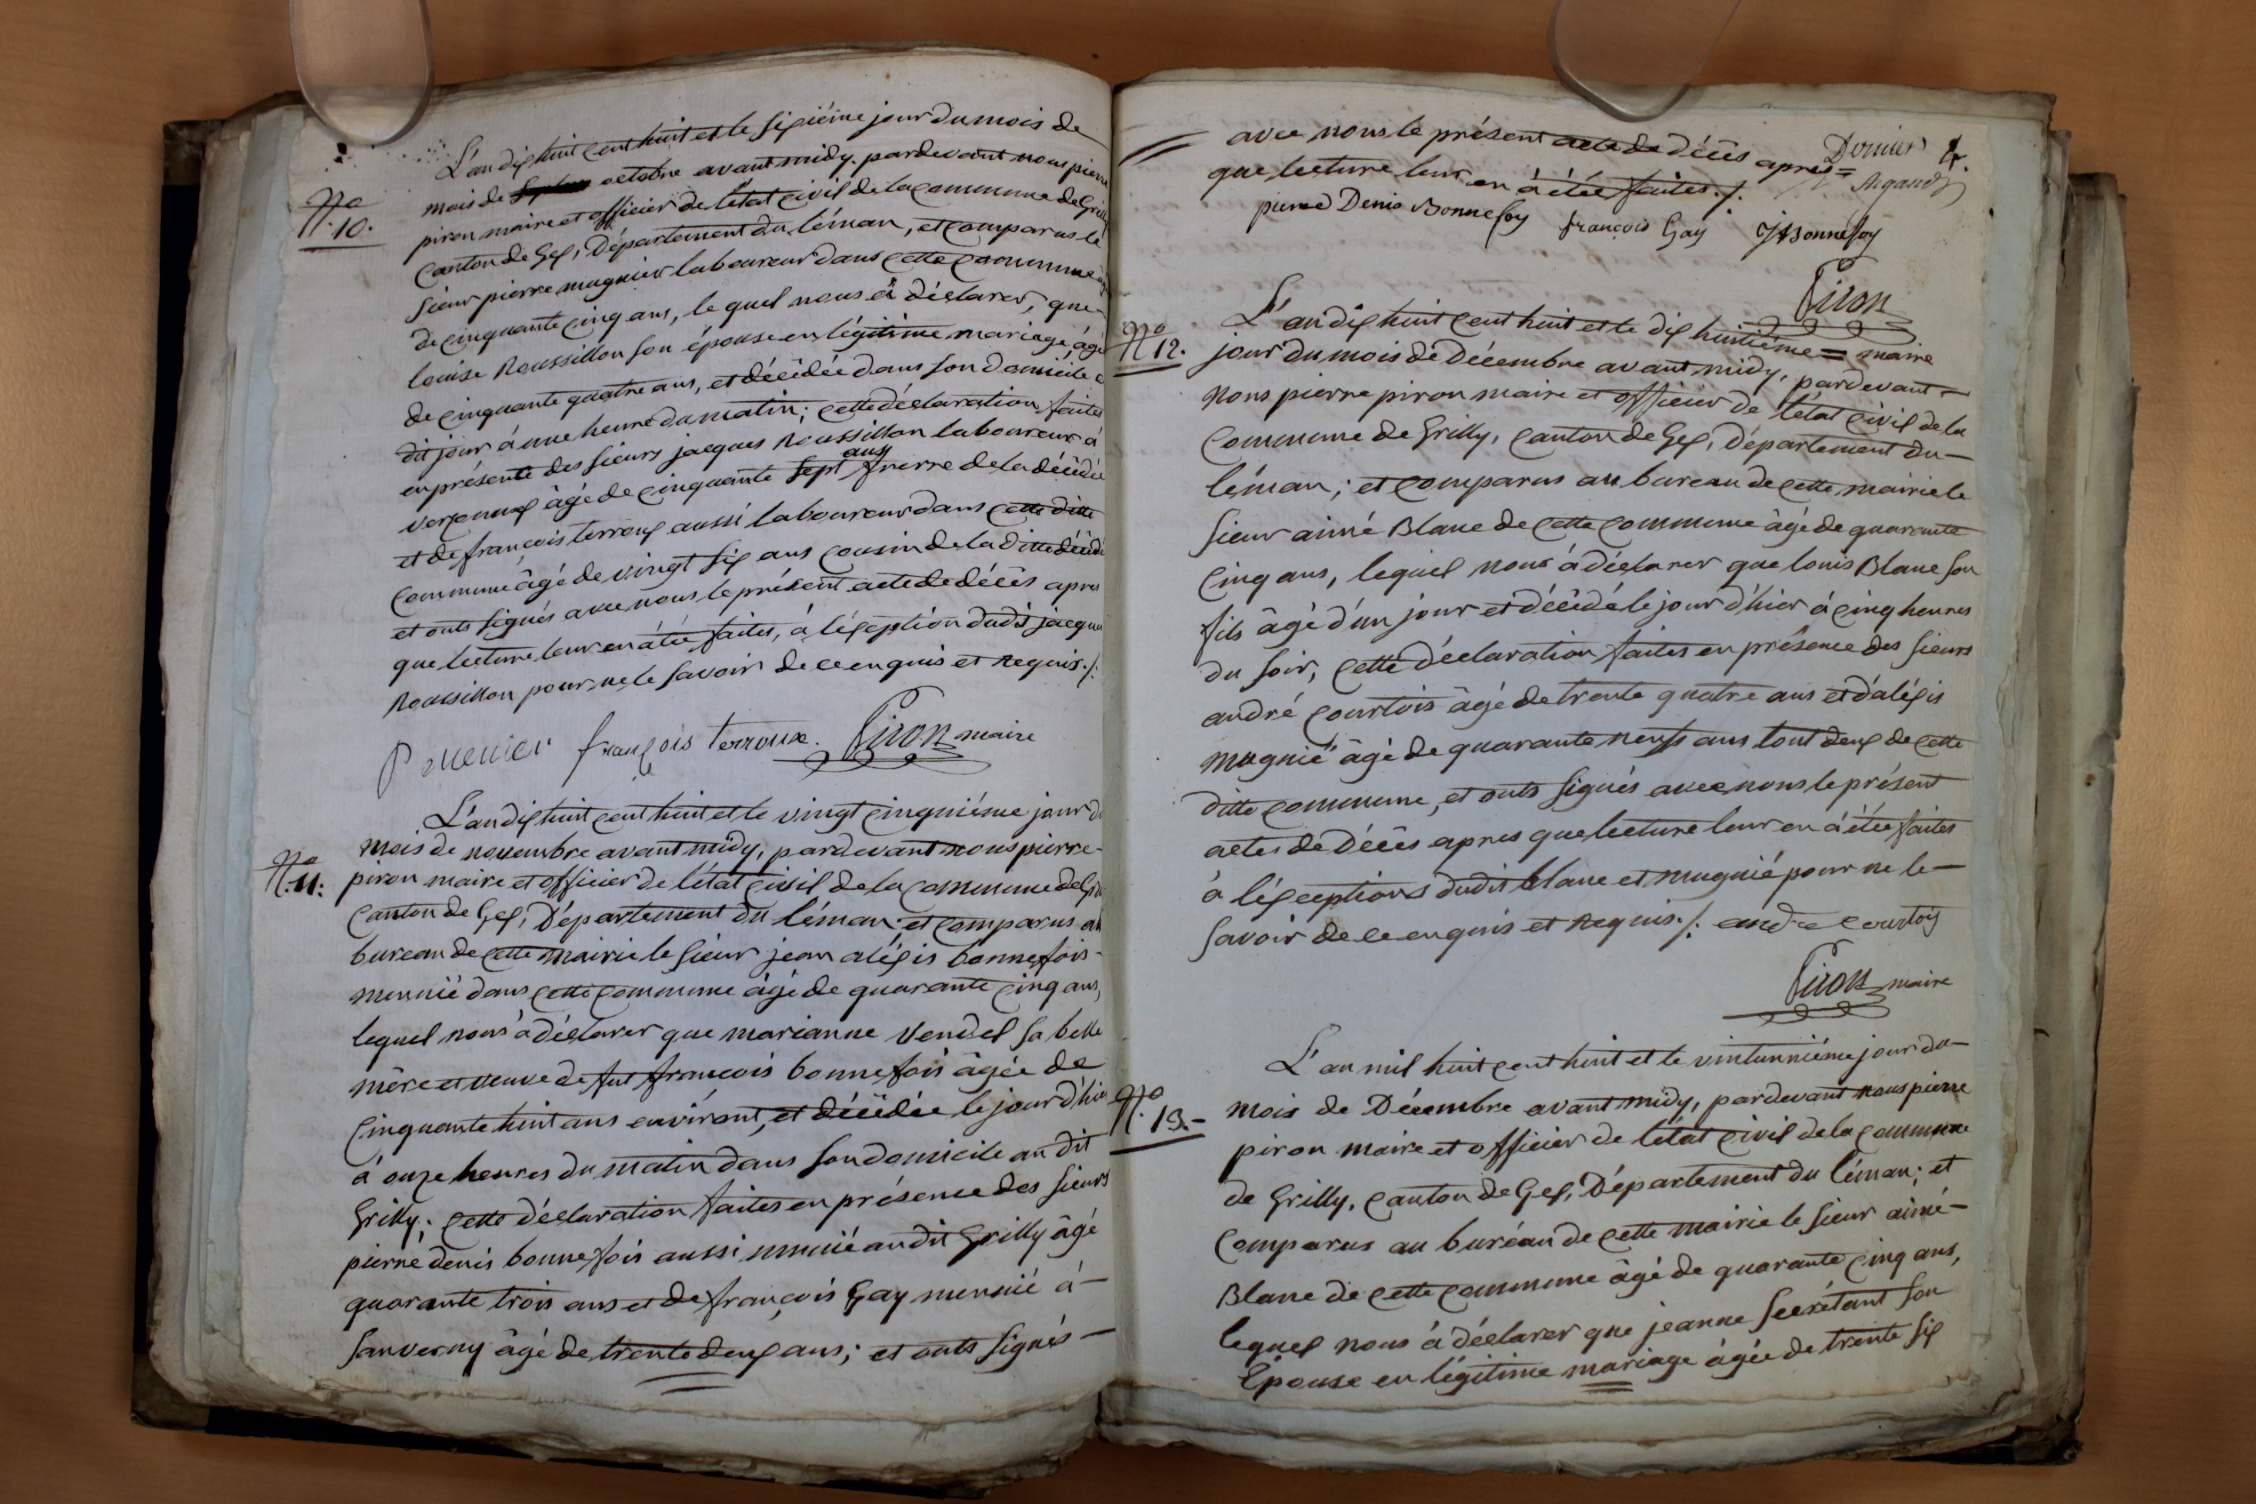 L'an dix huit cent huit et le sixième jour du mois de
No 10.
mois de octobre avant midy. pardevant nous pierre
piron maire et officier de l'état civil de la commune de Grilly
Canton de Gex, Département du léman, et comparus le
sieur pierre mugnier laboureur dans cette commune
de cinquante cinq ans, le quel nous à déclarer, que
louise Roussillon son épouse en légitime mariage, âgé
de cinquante quatre ans, et décédée dans son domicile
dit jour à une heure du matin; cette déclaration faites
en présente des sieurs jacques Roussillon laboureur à
versonnex âgé de cinquante sept ans frerre de la décédé
et de françois terroux aussi laboureur dans cette ditte
Commune âgé de vingt six ans cousin de la ditte décédé
et onts signés avec nous le présent acte de décês apres
que lecture leur en à été faites, à léxeption dudit jacque
Roussillon pour ne le savoir de ce enquis et Requis./.
françois terroux. Piron maire
L'an dix huit cent huit et le vingt cinquiéme jour d
No 11:
mois de novembre avant midy, pardevant nous pierre
piron maire et officier de l'état civil de la commune de Gri
Canton de Gex, Département du léman et comparus au
bureau de cette mairie le sieur jean aléxis bonnefois
meunié dans cette commune âgé de quarante cinq ans,
lequel nous à déclarer que marianne Vendel sa belle
mère et veuve de fut françois bonnefois âgée de
Cinquante huit ans environt, et décédée le jour d'hier
à onze heures du matin dans son domicile au dit
Grilly; cette déclaration faites en présence des sieurs
pierre denis bonnefois aussi meunié au dit Grilly âgé
quarante trois ans et de françois Gay meunié à
Sauverny âgé de trente deux ans; et onts signés
avec nous le présent acte de décês aprés
que lecture leur en à étée faites./.
Dernier
pierre Denis Bonnefoy françois Gay JABonnefoy
Piron
maire
No 12.
L'an dix huit cent huit et le dix huitiéme
jour du mois de Décembre avant midy, pardevant
nous pierre piron maire et officier de l'état civil de la
Commune de Grilly, Canton de Gex, Département du
léman; et comparus au bureau de cette mairie le
sieur aimé Blanc de cette commune âgé de quarante
Cinq ans, lequel nous à déclarer que louis Blanc son
fils âgé d'un jour et décédé le jour d'hier à cinq heures
du soir, cette déclaration faites en présence des sieurs
andré Courtois âgé de trente quatre ans et d'aléxis
mugnié âgé de quarante neufs ans tout deux de cette
ditte commune, et onts signés avec nous le présent
actes de Décês apres que lecture leur en à étée faites
à léxceptions dudit blanc et mugnié pour ne le
savoir de ce enquis et Requis./. andre courtois
Piron maire
L'an mil huit cent huit et le vintunniéme jour du
No 13.
mois de Décembre avant midy, pardevant nous pierre
piron maire et officier de l'état civil de la commune
de Grilly, Canton de Gex, Département du léman; et
Comparus au buréau de cette mairie le sieur aimé
Blanc de cette commune âgé de quarante cinq ans,
lequel nous à déclarer que jeanne secrétant son
Épouse en légitime mariage âgée de trente six